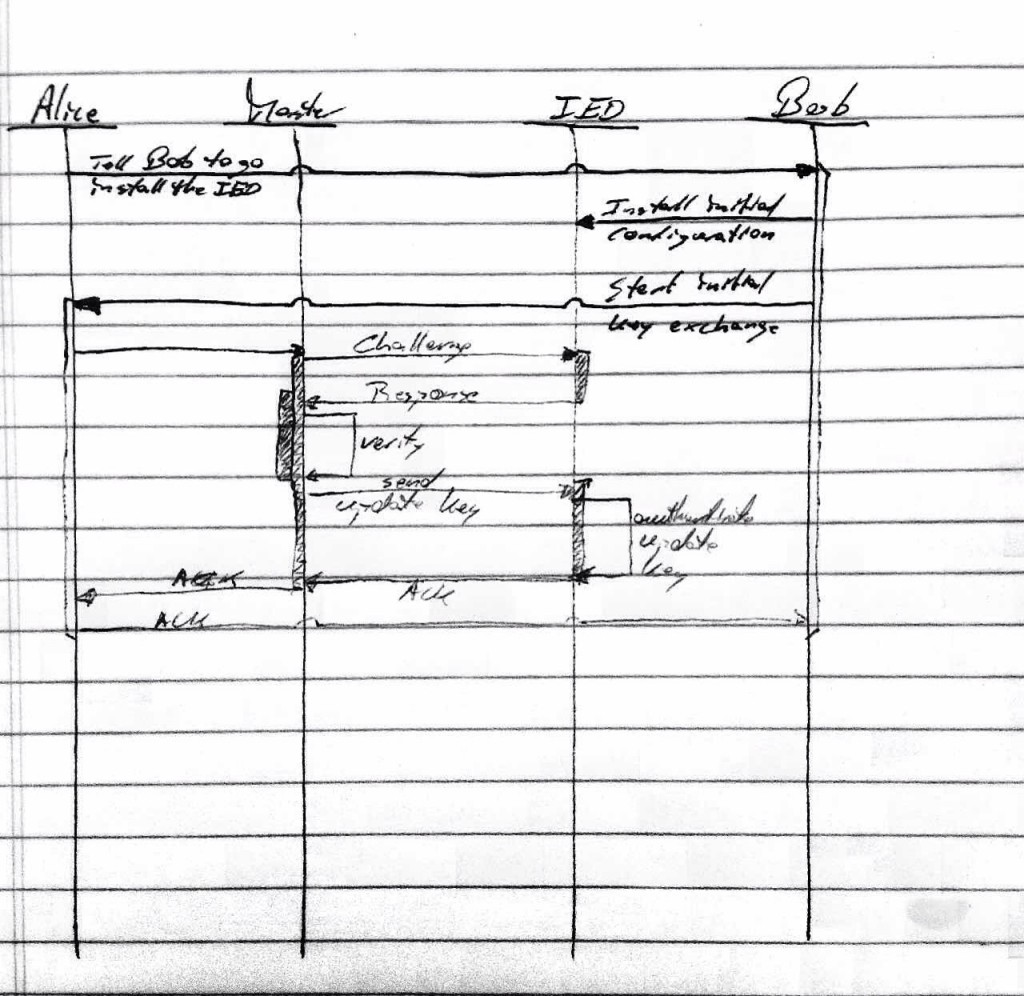 Alice Master IED Bob
Tell Bob to go
install the IED
Install initial
configuration
Start initial
key exchange
Challenge
Response
verify
send
update key
authenticate
update
key
ACK
ACK
ACK